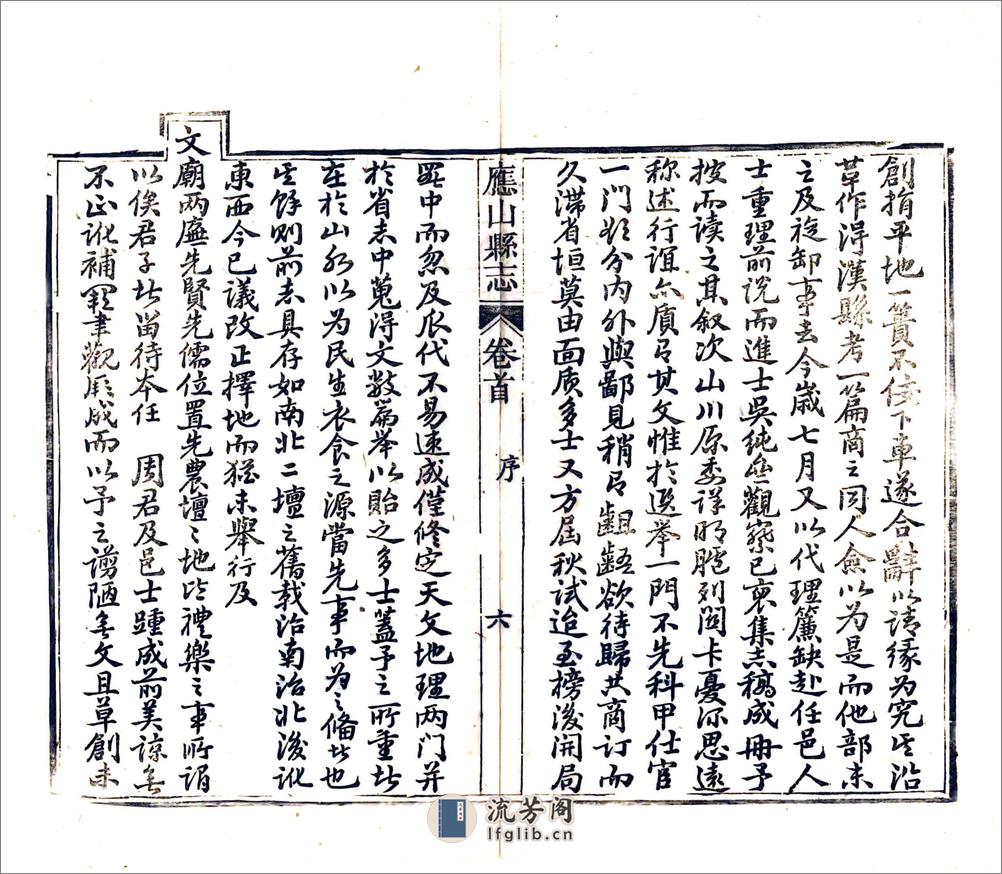 創指平地一簣不佞下車遂合辭以請緣為究其沿
革作得漢縣考一篇商之同人僉以為是而他部未
之及旋卸事去今歲七月又以代理簾缺赴任邑人
士重理前說而進士吳純 觀察已裒集志稿成冊予
披而讀之其叙次山川原委詳明臚列關卡憂深思遠
称述行誼亦質有其文惟於選舉一門不先科甲仕宦
一門 分內外與鄙見稍有齟齬欲待歸共商訂而
久滯省垣莫由面质多士又方屆秋試迨至榜後開局
應山縣志 卷首 序 六
罷中而忽及瓜代不易速成僅修定天文地理两門并
於省志中蒐得文數篇舉以貽之多士蓋予之所重者
在於山水以為民生衣食之源當先事而為之備者也
其餘則前志具存如南北二壇之舊載治南治北後訛
東西今已議改正擇地而猶未舉行及
文廟两廡先賢先儒位置先農壇之地皆禮樂之事所謂
以俟君子者留待本任 周君及邑士踵成前美諒無
不正訛補闕聿觀厥成而以予之謭陋無文且草創未
流芳阁
lfglib.cn